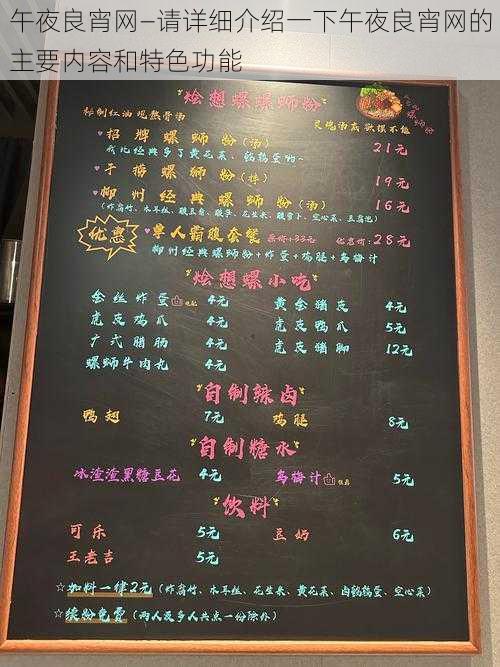 午夜良宵网—请详细介绍一下午夜良宵网的
主要内容和特色功能
烩想螺螺蛳粉
秘制红油现熬骨汤
招牌螺蛳粉(汤) 21元
我比经典多了黄花菜、鹌鹑蛋哟~
干捞螺蛳粉(拌) 19元
柳州经典螺蛳粉(汤) 16元
(炸腐竹、木耳丝、酸豆角、酸笋、花生米、酸萝卜、空心菜、豆腐泡)
优惠 单人霸腹套餐 原价:33元 优惠价:28元
柳州经典螺蛳粉+炸蛋+鸡腿+乌梅汁
烩想螺小吃
金丝炸蛋 4元 黄金猪皮 4元
虎皮鸡爪 4元 虎皮鸭爪 5元
广式腊肠 4元 虎皮猪脚 12元
螺蛳牛肉丸 4元
自制辣卤
鸭翅 7元 鸡腿 8元
自制糖水
冰渣渣黑糖豆花 4元 乌梅汁 5元
饮料
可乐 5元 豆奶 6元
王老吉 5元
☆加料一律2元(炸腐竹、木耳丝、花生米、黄花菜、卤鹌鹑蛋、空心菜)
☆续粉免费(两人及多人共点一份除外)